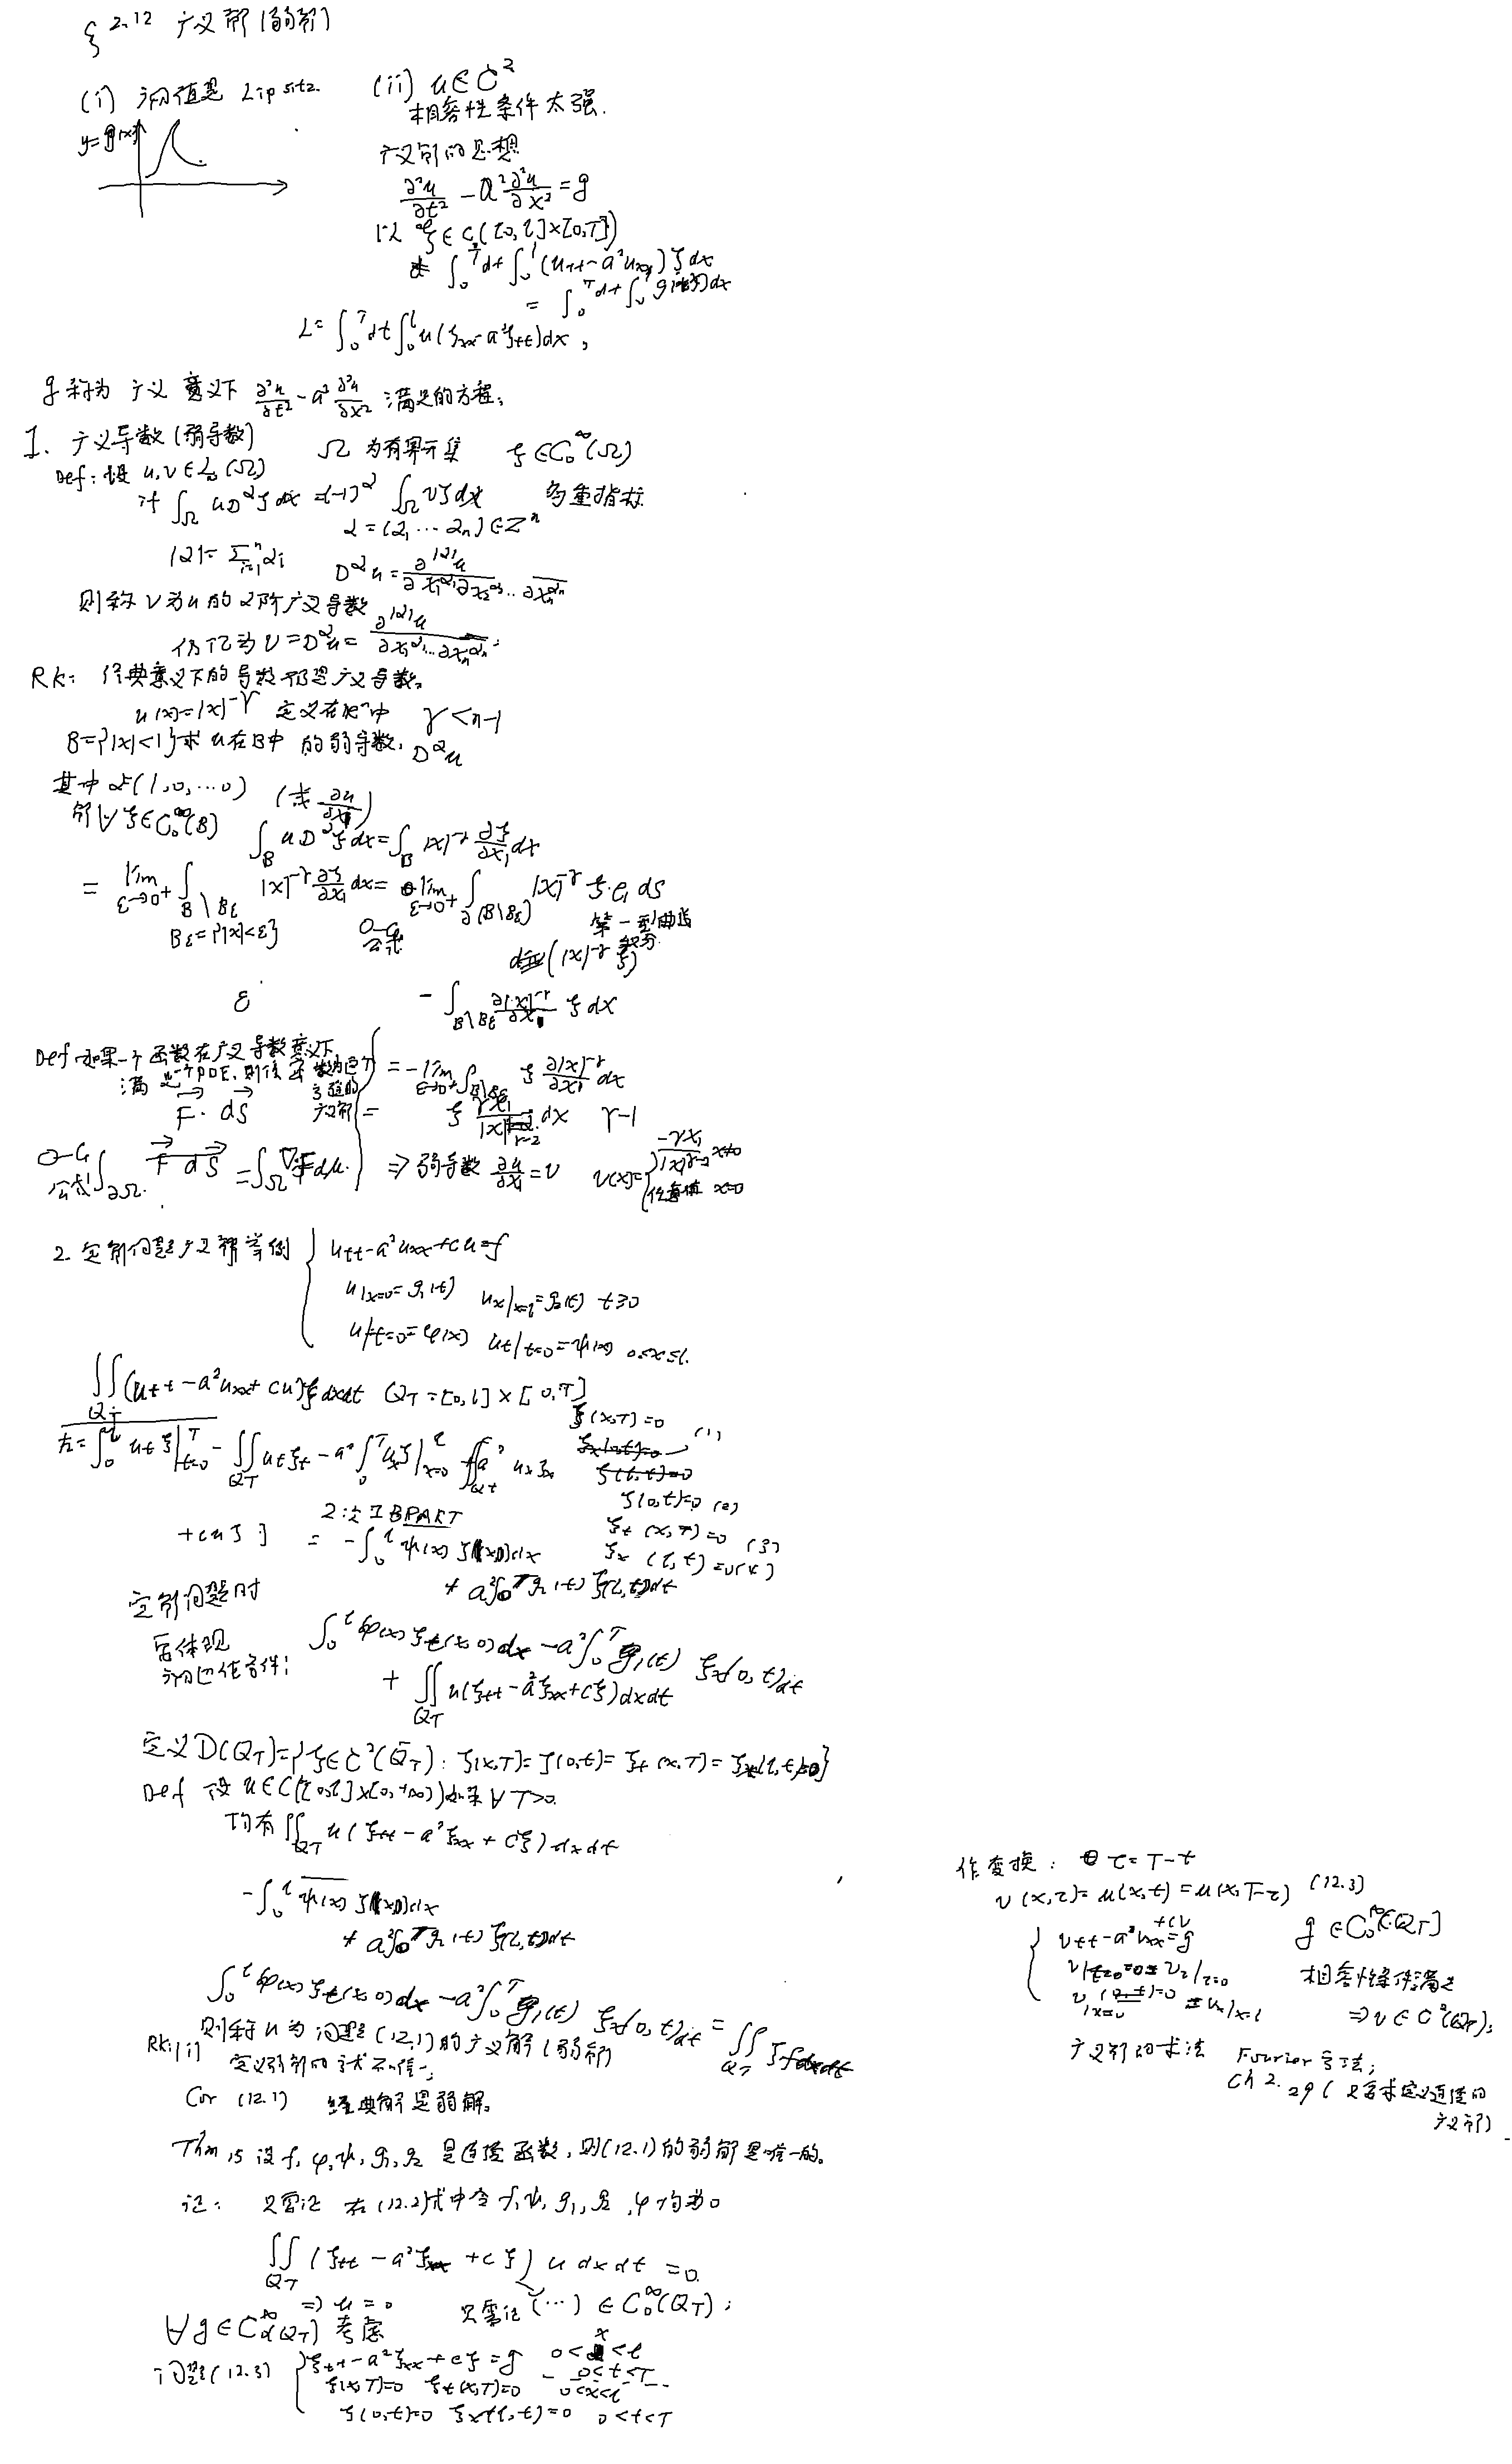 § 2.12 广义解(弱解)
(i) 初值是 Lipsitz.
(ii) u∈C²
相容性条件太强.
y=φ(x)
广义解的思想
∂²u/∂t² - a² ∂²u/∂x² = g
以 ξ∈C₀([0,l]×[0,T])
∫₀ᵀdt∫₀ˡ(u_tt-a²u_xx)ξdx
= ∫₀ᵀdt∫₀ˡ g ξ dx
L= ∫₀ᵀdt∫₀ˡ u(ξ_xx-a²ξ_tt)dx,
g 称为 广义 意义下 ∂²u/∂t² - a² ∂²u/∂x² 满足的方程,
1. 广义导数(弱导数) Ω 为有界开集 ξ∈C₀^∞(Ω)
Def: 设 u,v∈L(Ω)
if ∫_Ω uD^αξdx =(-1)^α ∫_Ω vξdx 多重指标
α=(α₁ ⋯ αₙ)∈Zⁿ
|α|=Σᵢ₌₁ⁿαi D^αu = ∂^|α|u/∂x₁^α₁∂x₂^α₂⋯∂xₙ^αₙ
则称 v 为 u 的 α 阶广义导数
仍记为 v=D^αu= ∂^|α|u/∂x₁^α₁⋯∂xₙ^αₙ.
Rk: 经典意义下的导数都是广义导数。
u(x)=|x|^-γ 定义在Rⁿ中 γ<n-1
B={|x|<1}求 u在B中 的弱导数, D^αu
其中 α=(1,0,⋯0) (求 ∂u/∂x₁)
解 ∀ ξ∈C₀^∞(B) ∫_B uD^αξdx=∫_B |x|^-γ ∂ξ/∂x₁ dx
= lim_ε→0⁺ ∫_B\Bε |x|^-γ ∂ξ/∂x₁ dx = lim_ε→0⁺ ∫_∂(B\Bε) |x|^-γ ξ·e₁ ds
Bε={|x|<ε} O-G 公式 第一型曲线积分
div(|x|^-γ ξ)
ε - ∫_B\Bε ∂|x|^-γ/∂x₁ ξ dx
Def 如果一个函数在广义导数意义下
满足一个PDE,则该函数为
广义解
= -lim_ε→0⁺ ∫_B\Bε ξ ∂|x|^-γ/∂x₁ dx
F⃗·dS⃗ = ξ γx₁/|x|^γ-2 dx γ-1
O-G 公式 ∫_∂Ω F⃗ dS⃗ = ∫_Ω ∇F⃗ dμ. ⇒ 弱导数 ∂u/∂x₁=v v(x)={ -γx₁/|x|^γ-2 x≠0
任意值 x=0
2. 定解问题广义解举例 { u_tt-a²u_xx+cu=f
u|x=0=g₁(t) u_x|x=l=g₂(t) t≥0
u|t=0=φ(x) u_t|t=0=ψ(x) 0≤x≤l.
∬_QT (u_tt-a²u_xx+cu)ξdxdt QT=[0,l]×[0,T]
左=∫₀ˡ u_tξ|ᵀ_t=0 - ∬_QT u_tξ_t - a²∫₀ᵀ u_xξ|ˡ_x=0 + ∬_QT a² u_xξ_x
ξ(x,T)=0 (1)
ξ(0,t)=0 (2)
ξ_t(x,T)=0 (3)
ξ_x(l,t)=0 (4)
+cuξ] 2次 IBPART = -∫₀ˡ ψ(x) ξ(x,0)dx
+ a²∫₀ᵀ g₂(t) ξ(l,t)dt
定解问题时
需体现
初边值条件:
∫₀ˡ φ(x) ξ_t(x,0)dx - a²∫₀ᵀ g₁(t) ξ_x(0,t)dt
+ ∬_QT u(ξ_tt-a²ξ_xx+cξ)dxdt
定义 D(QT)={ξ∈C²(Q̄T): ξ(x,T)=ξ(0,t)=ξ_t(x,T)=ξ_x(l,t)=0}
Def 设 u∈C([0,l]×[0,+∞)) 如果 ∀T>0.
均有 ∬_QT u(ξ_tt-a²ξ_xx+cξ)dxdt
-∫₀ˡ ψ(x) ξ(x,0)dx
+ a²∫₀ᵀ g₂(t) ξ(l,t)dt
∫₀ˡ φ(x) ξ_t(x,0)dx - a²∫₀ᵀ g₁(t) ξ_x(0,t)dt = ∬_QT ξfdxdt
则称 u 为 问题(12.1)的广义解(弱解)
Rk:(i) 定义弱解的方式不唯一;
Cor (12.1) 经典解是弱解。
Thm 15 设 f, φ, ψ, g₁, g₂ 是连续函数, 则(12.1)的弱解是唯一的。
证: 只需证 在(12.2)式中令 f, ψ, g₁, g₂, φ 均为0
∬_QT (ξ_tt-a²ξ_xx+cξ) u dxdt = 0.
⇒ u=0 只需证 (⋯) ∈C₀^∞(QT);
∀g∈C₀^∞(QT) 考虑
问题(12.3) { ξ_tt-a²ξ_xx+cξ=g 0<x<l
0<t<T
ξ(x,T)=0 ξ_t(x,T)=0 0<x<l
ξ(0,t)=0 ξ_x(l,t)=0 0<t<T
作变换: τ=T-t
v(x,τ)=u(x,t)=u(x,T-τ) (12.3)
{ v_tt-a²v_xx+cv=g g∈C₀^∞[QT]
v|t=0=0=v_τ|τ=0 相容性条件满足
v|x=0=0=v_x|x=l ⇒v∈C²(QT);
广义解的求法 Fourier 方法;
Ch 2. 29 (只要求定义连续的
广义解)